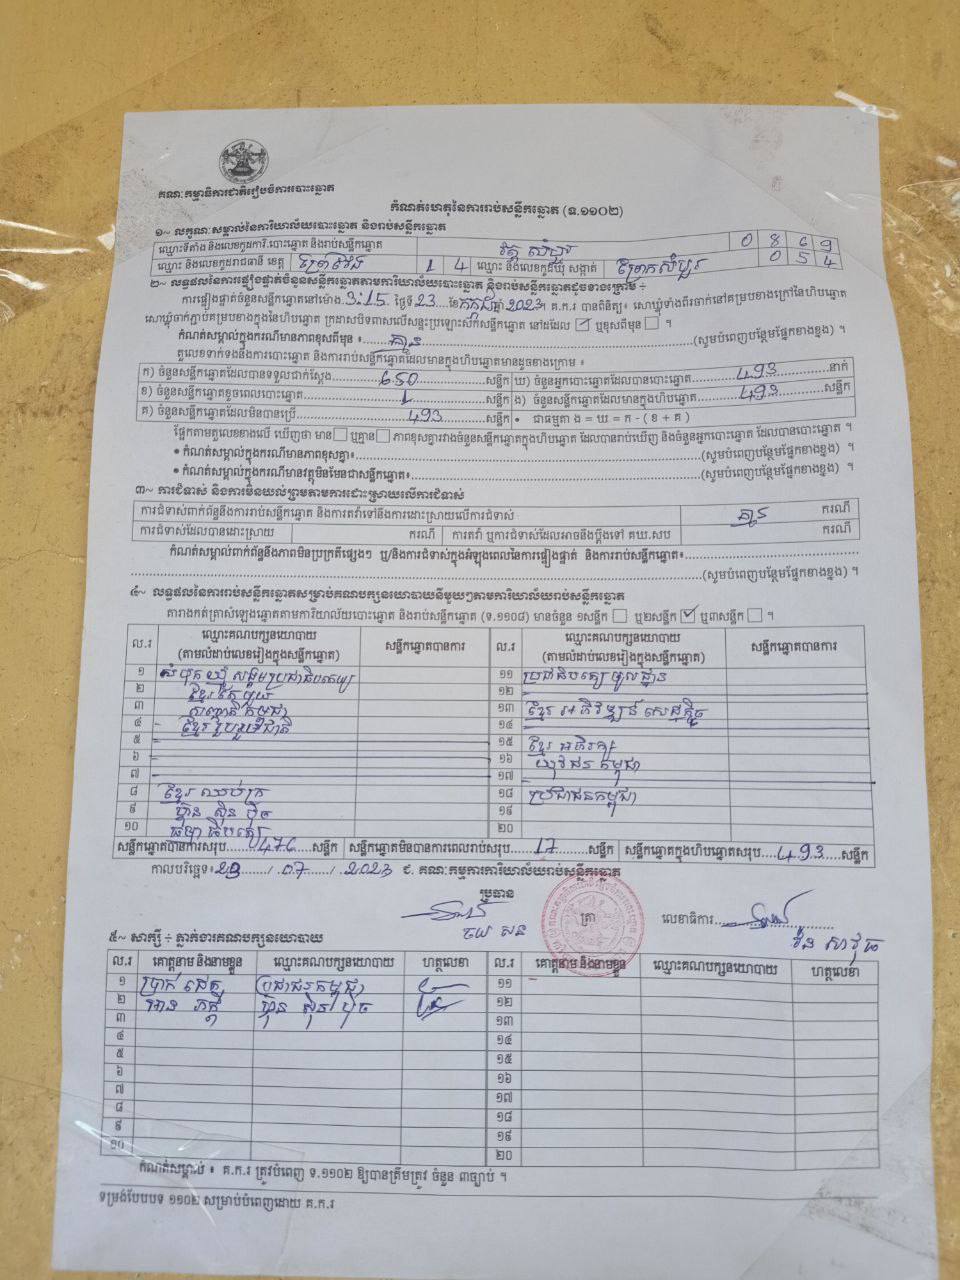 គណៈកម្មាធិការជាតិរៀបចំការបោះឆ្នោត
កំណត់ហេតុនៃការរាប់សន្លឹកឆ្នោត (ទ.១១០២)
១~ លក្ខណៈសម្គាល់នៃការិយាល័យបោះឆ្នោត និងរាប់សន្លឹកឆ្នោត
ឈ្មោះទីតាំង និងលេខកូដការិ.បោះឆ្នោត និងរាប់សន្លឹកឆ្នោត វត្ត សំបួរ 0 8 6 9
ឈ្មោះ និងលេខកូដរាជធានី ខេត្ត ព្រៃវែង 1 4 ឈ្មោះ និងលេខកូដឃុំ សង្កាត់ ព្រែកសំបួរ 0 5 4
២~ លទ្ធផលនៃការផ្ទៀងផ្ទាត់ចំនួនសន្លឹកឆ្នោតតាមការិយាល័យបោះឆ្នោត និងរាប់សន្លឹកឆ្នោតដូចខាងក្រោម ÷
ការផ្ទៀងផ្ទាត់ចំនួនសន្លឹកឆ្នោតនៅម៉ោង 3:15 ថ្ងៃទី 23 ខែ កក្កដា ឆ្នាំ 2023 ។ គ.ក.រ បានពិនិត្យ៖ សោឃ្មុំទាំងពីរចាក់នៅគម្របខាងក្រៅនៃហិបឆ្នោត
សោឃ្មុំចាក់ភ្ជាប់គម្របខាងក្នុងនៃហិបឆ្នោត ក្រដាសបិទពាសលើសន្ទះប្រឡោះស៊កសន្លឹកឆ្នោត នៅដដែល ☑ ឬខុសពីមុន ☐ ។
កំណត់សម្គាល់ក្នុងករណីមានភាពខុសពីមុន ៖ គ្មាន (សូមបំពេញបន្ថែមផ្នែកខាងខ្នង) ។
តួលេខទាក់ទងនឹងការបោះឆ្នោត និងការរាប់សន្លឹកឆ្នោតដែលមានក្នុងហិបឆ្នោតមានដូចខាងក្រោម ៖
ក) ចំនួនសន្លឹកឆ្នោតដែលបានទទួលជាក់ស្តែង 650 សន្លឹក ឃ) ចំនួនអ្នកបោះឆ្នោតដែលបានបោះឆ្នោត 493 នាក់
ខ) ចំនួនសន្លឹកឆ្នោតខូចពេលបោះឆ្នោត 1 សន្លឹក ង) ចំនួនសន្លឹកឆ្នោតដែលមានក្នុងហិបឆ្នោត 493 សន្លឹក
គ) ចំនួនសន្លឹកឆ្នោតដែលមិនបានប្រើ 493 សន្លឹក • ជាធម្មតា ង = ឃ = ក - ( ខ + គ )
ផ្អែកតាមតួលេខខាងលើ ឃើញថា មាន ☐ ឬគ្មាន ☐ ភាពខុសគ្នារវាងចំនួនសន្លឹកឆ្នោតក្នុងហិបឆ្នោត ដែលបានរាប់ឃើញ និងចំនួនអ្នកបោះឆ្នោត ដែលបានបោះឆ្នោត ។
• កំណត់សម្គាល់ក្នុងករណីមានភាពខុសគ្នា៖ (សូមបំពេញបន្ថែមផ្នែកខាងខ្នង) ។
• កំណត់សម្គាល់ក្នុងករណីមានវត្ថុមិនមែនជាសន្លឹកឆ្នោត៖ (សូមបំពេញបន្ថែមផ្នែកខាងខ្នង) ។
៣~ ការជំទាស់ និងការមិនយល់ព្រមតាមការដោះស្រាយលើការជំទាស់
ការជំទាស់ពាក់ព័ន្ធនឹងការរាប់សន្លឹកឆ្នោត និងការតវ៉ាទៅនឹងការដោះស្រាយលើការជំទាស់ គ្មាន ករណី
ការជំទាស់ដែលបានដោះស្រាយ ករណី ការតវ៉ា ឬការជំទាស់ដែលអាចនឹងប្តឹងទៅ គឃ.សប ករណី
កំណត់សម្គាល់ពាក់ព័ន្ធនឹងភាពមិនប្រក្រតីផ្សេងៗ ឬ/និងការជំទាស់ក្នុងអំឡុងពេលនៃការផ្ទៀងផ្ទាត់ និងការរាប់សន្លឹកឆ្នោត៖
(សូមបំពេញបន្ថែមផ្នែកខាងខ្នង) ។
៤~ លទ្ធផលនៃការរាប់សន្លឹកឆ្នោតសម្រាប់គណបក្សនយោបាយនីមួយៗតាមការិយាល័យរាប់សន្លឹកឆ្នោត
តារាងកត់ត្រាសំឡេងឆ្នោតតាមការិយាល័យបោះឆ្នោត និងរាប់សន្លឹកឆ្នោត (ទ.១១០៨) មានចំនួន ១សន្លឹក ☐ ឬ២សន្លឹក ☑ ឬ៣សន្លឹក ☐ ។
ល.រ ឈ្មោះគណបក្សនយោបាយ (តាមលំដាប់លេខរៀងក្នុងសន្លឹកឆ្នោត) សន្លឹកឆ្នោតបានការ ល.រ ឈ្មោះគណបក្សនយោបាយ (តាមលំដាប់លេខរៀងក្នុងសន្លឹកឆ្នោត) សន្លឹកឆ្នោតបានការ
១ សំបុកឃ្មុំសង្គមប្រជាធិបតេយ្យ ១១ ប្រជាធិបតេយ្យមូលដ្ឋាន
២ ខ្មែរតែមួយ ១២
៣ សញ្ជាតិកម្ពុជា ១៣ ខ្មែរអភិវឌ្ឍន៍សេដ្ឋកិច្ច
៤ ខ្មែររួបរួមជាតិ ១៤
៥ ១៥ ខ្មែរអភិរក្ស
៦ ១៦ យុវជនកម្ពុជា
៧ ១៧
៨ ខ្មែរឈប់ក្រ ១៨ ប្រជាជនកម្ពុជា
៩ ហ៊្វុនស៊ិនប៉ិច ១៩
១០ ធម្មាធិបតេយ្យ ២០
សន្លឹកឆ្នោតបានការសរុប 476 សន្លឹក សន្លឹកឆ្នោតមិនបានការពេលរាប់សរុប 17 សន្លឹក សន្លឹកឆ្នោតក្នុងហិបឆ្នោតសរុប 493 សន្លឹក
កាលបរិច្ឆេទ៖ 23 / 07 / 2023 ៩. គណៈកម្មការការិយាល័យរាប់សន្លឹកឆ្នោត
ប្រធាន ត្រា លេខាធិការ
៥~ សាក្សី ÷ ភ្នាក់ងារគណបក្សនយោបាយ
ល.រ គោត្តនាម និងនាមខ្លួន ឈ្មោះគណបក្សនយោបាយ ហត្ថលេខា ល.រ គោត្តនាម និងនាមខ្លួន ឈ្មោះគណបក្សនយោបាយ ហត្ថលេខា
១ ប្រាក់ ប្រជាជនកម្ពុជា ១១
២ អាន ភក្តី ហ៊្វុន ស៊ិន ប៉ិច ១២
៣ ១៣
៤ ១៤
៥ ១៥
៦ ១៦
៧ ១៧
៨ ១៨
៩ ១៩
១០ ២០
កំណត់សម្គាល់ ៖ គ.ក.រ ត្រូវបំពេញ ទ.១១០២ ឱ្យបានត្រឹមត្រូវ ចំនួន ៣ច្បាប់ ។
ទម្រង់បែបបទ ១១០២ សម្រាប់បំពេញដោយ គ.ក.រ